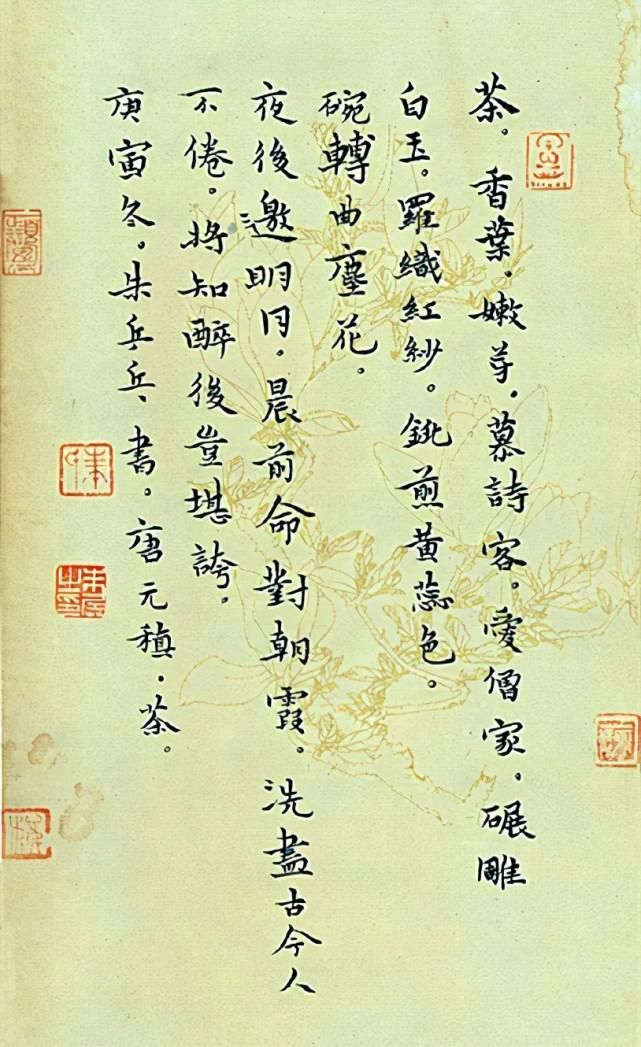 茶。香葉。嫩芽。慕詩客。愛僧家。碾雕
白玉。羅織紅紗。銚煎黃蕊色。
碗轉曲塵花。
夜後邀明月。晨前命對朝霞。洗盡古今人
不倦。將知醉後豈堪誇。
庚寅冬。朱乒乒、書。唐元稹.茶。